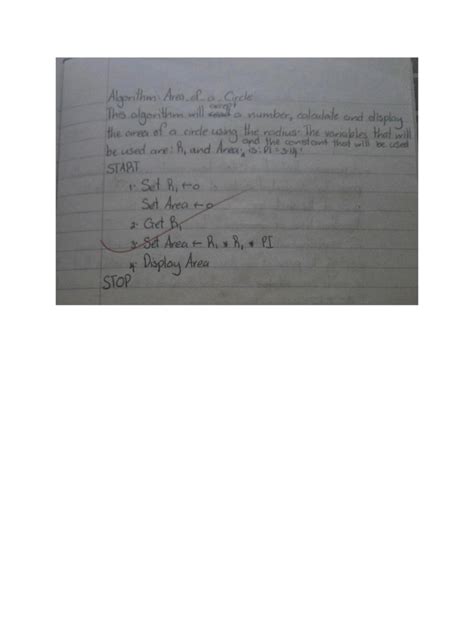 Algorithm: Area_of_a_Circle
accept
This algorithm will a number, calculate and display
the area of a circle using the radius. The variables that will
and the constant that will be used
be used are: R1 and Area, is: PI = 3.14.
START
1. Set R1 ← 0
Set Area ← 0
2. Get R1
3. Set Area ← R1 * R1 * PI
4. Display Area
STOP